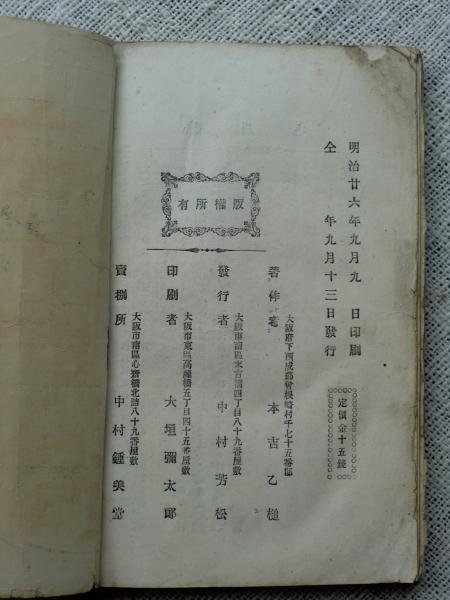 明治廿六年九月九日印刷
仝年九月十三日發行
定價金十五錢
版權所有
大阪府下西成郡曾根崎村千七十五番邸
著作者 本吉乙槌
大阪市南區末吉橋四丁目八十九番屋敷
發行者 中村芳松
大阪市東區高麗橋五丁目四十五番屋敷
印刷者 大垣彌太郎
大阪市南區心齋橋北詰八十九番屋敷
賣捌所 中村鍾美堂